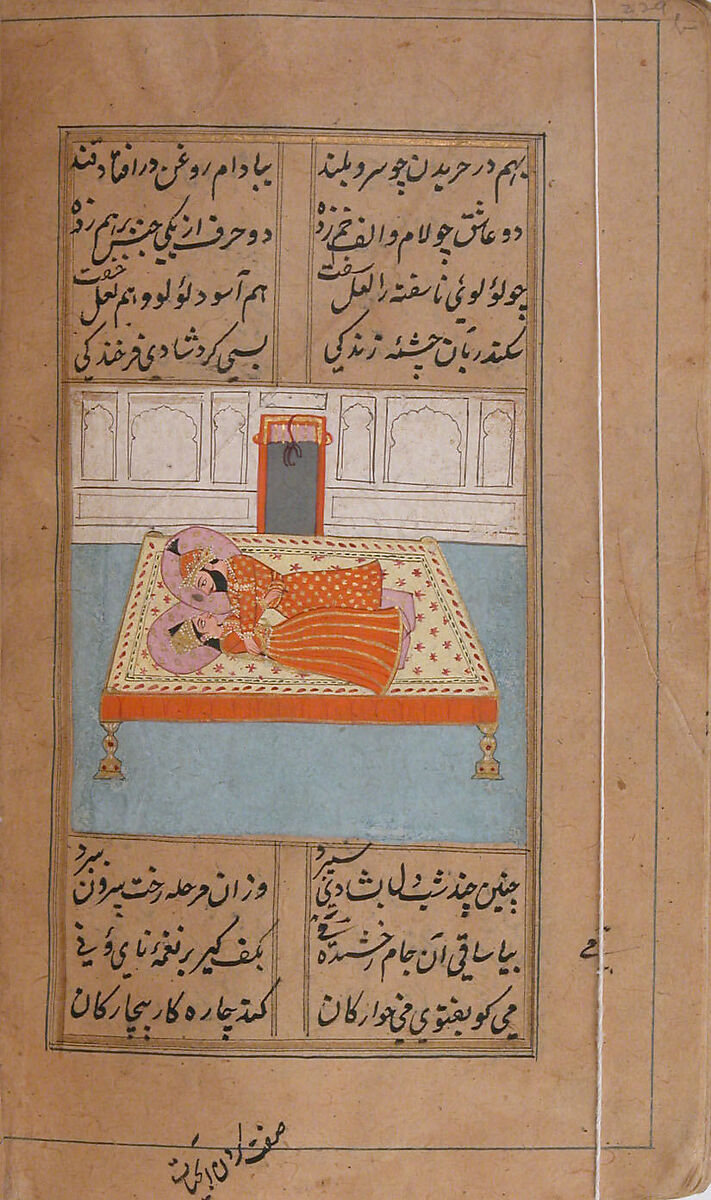 329
بهم در خریدن چو سرو بلند ببادام روغن در افتاد قند
دو عاشق چو لام و الف خم زده دو حرف از یکی جنس بر هم زده
چو لؤلوئ ناسفته را لعل سفت هم آسود لؤلو و هم لعل خفت
سکندر بآن چشمه زندکی بسی کرد شادی فرخندکی
چنین چند شب دل بشادی سپرد وزان مرحله رخت بیرون
بیا ساقی آن جام رخشنده می بکف کیر بر نغمهٔ نای و نی
می کو بفتوی می خوارکان کند چاره کار بیچارکان
صفت